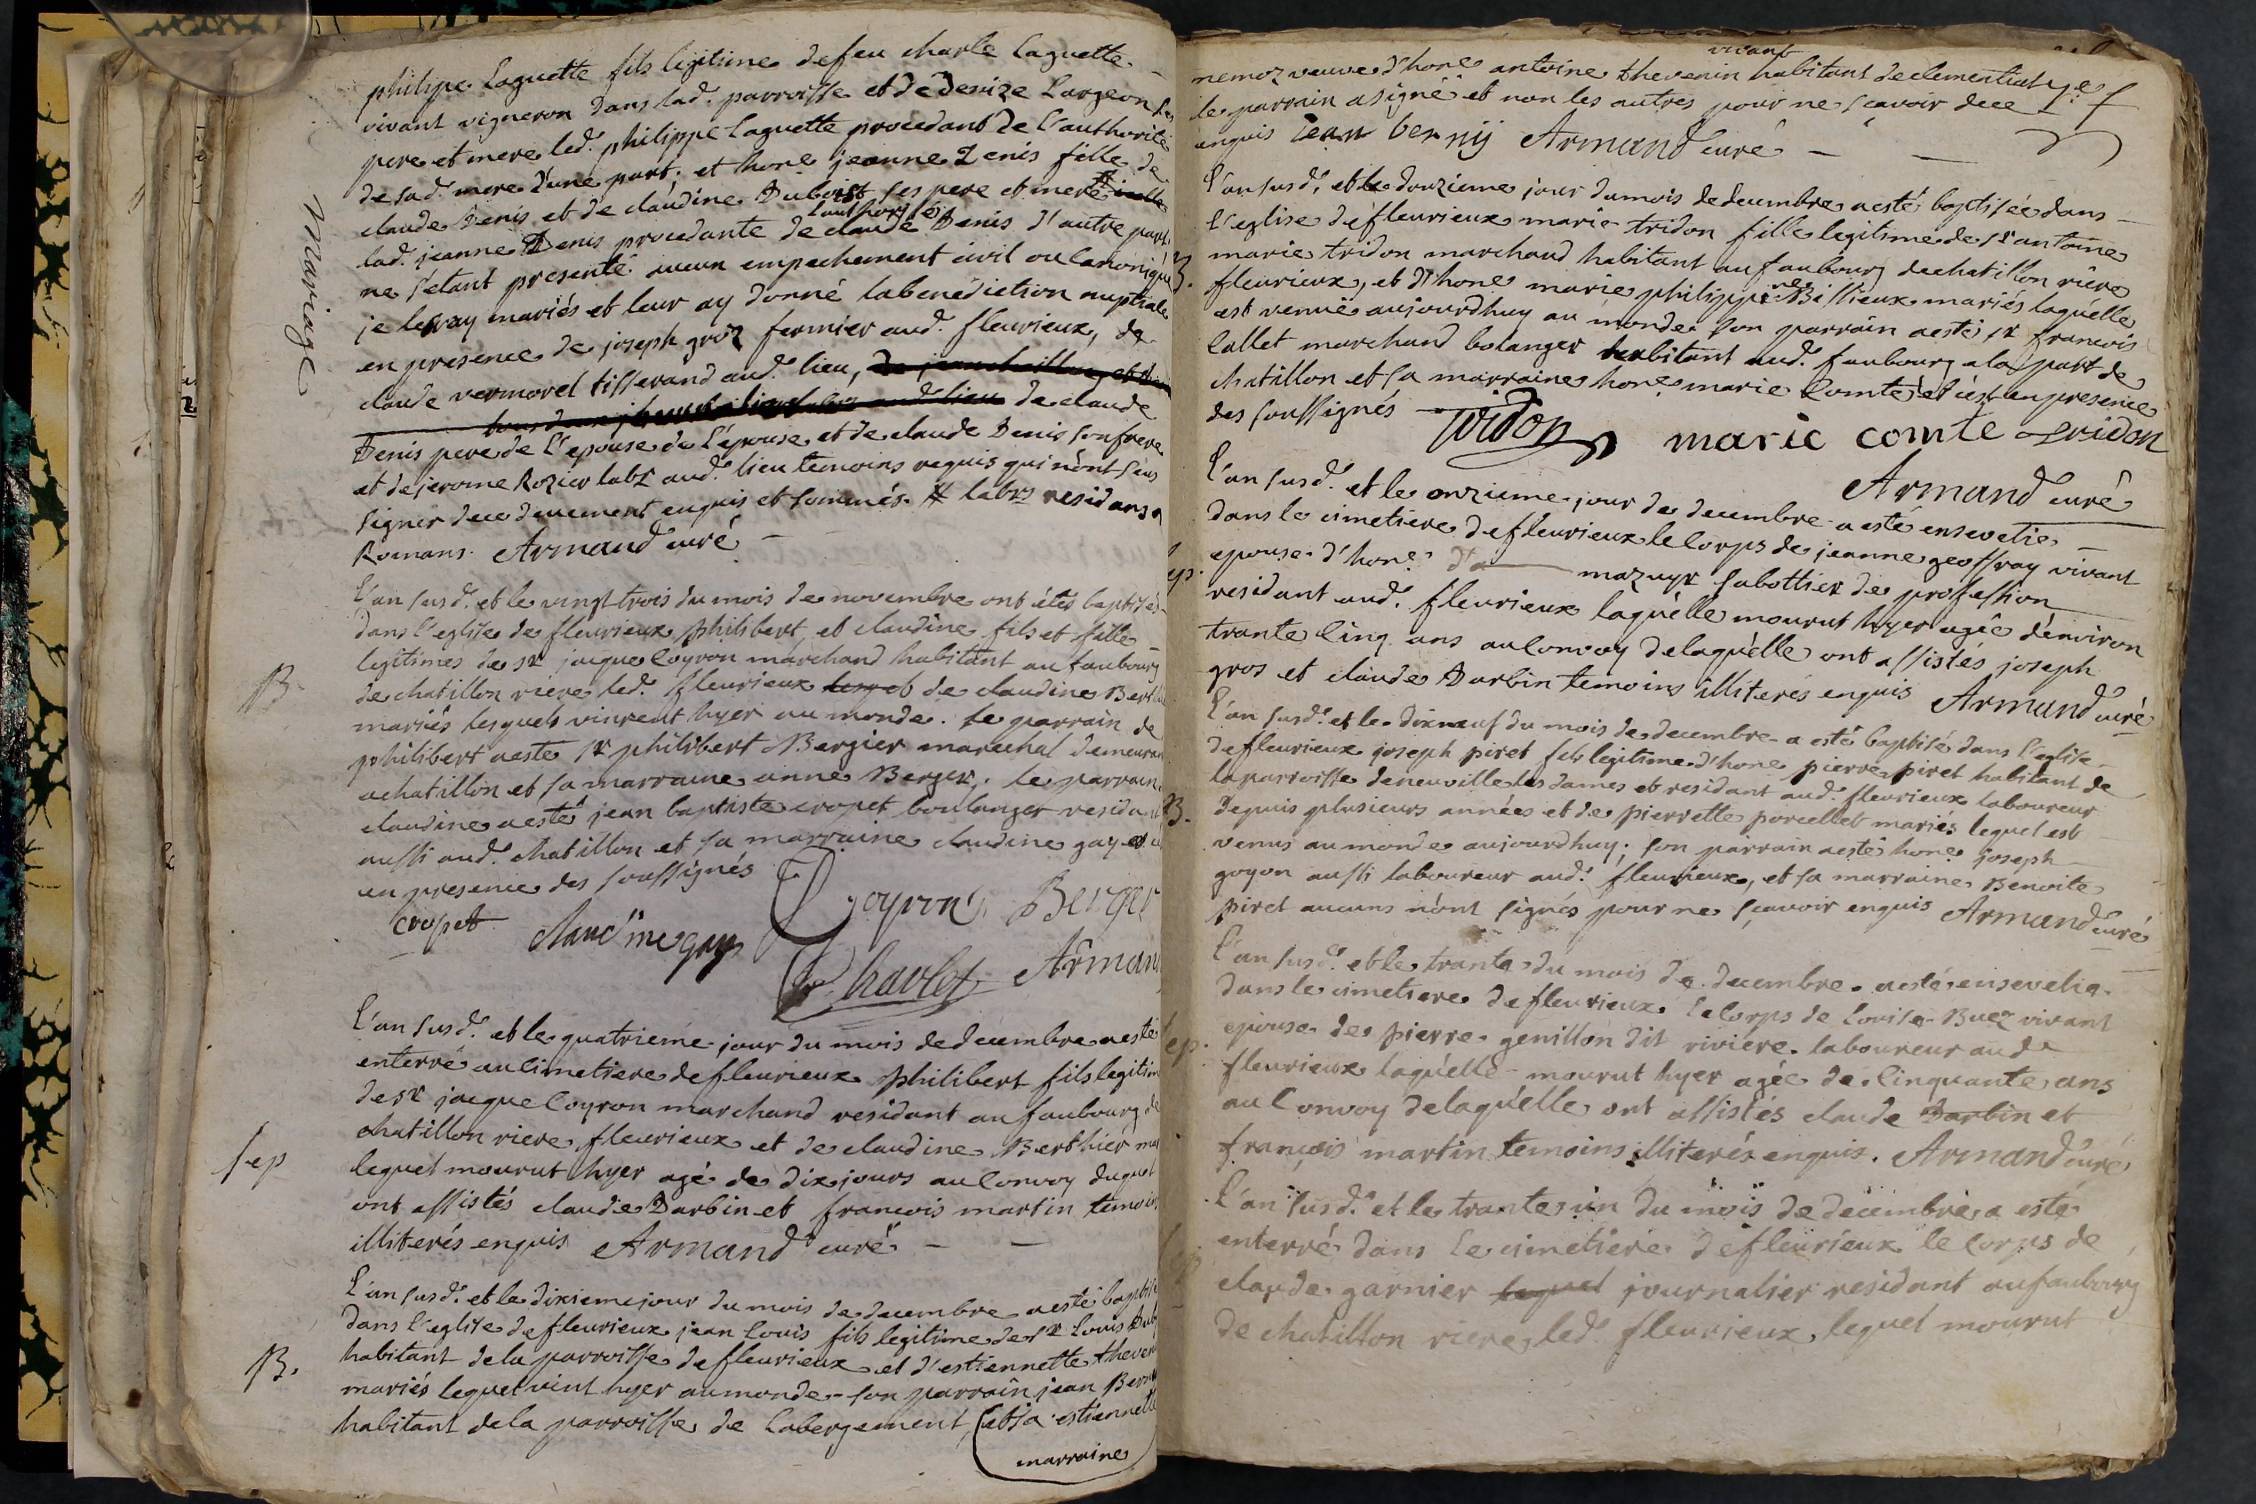 philippe Laguette fils legitime de feu charle Laguette
vivant vigneron dans lad. parroisse et de Denize Largeon ses
pere et mere led. philippe Laguette procedant de l'authorité
de sad. mere d'une part. et hone jeanne Denis fille de
claude Denis et de claudine Duboist ses pere et mere
lad. jeanne Denis procedante de l'authorité de claude Denis d'autre part.
ne s'etant presenté aucun empechement civil ou canonique
je les ay mariés et leur ay donné la benediction nuptiale
en presence de joseph groz fermier aud. fleurieux, de
claude vermorel tisserand aud. lieu,
de claude
Denis pere de l'epouse de l'epouse et de claude Denis son frere
et de jerome Rozier labr aud. lieu temoins requis qui n'ont sceus
signer de ce deuement enquis et sommés. # labrs residans a
Romans. Armand curé
Mariage
L'an susd. et le vingt trois du mois de novembre ont étés baptisés
dans l'eglise de fleurieux philibert et claudine fils et fille
legitimes de sr jacque Coyron marchand habitant au faubourg
de chatillon riere led. fleurieux et de claudine Berthier
mariés lesquels vinrent hyer au monde. le parrain de
philibert a esté sr philibert Bergier marechal demeurant
a chatillon et sa marraine anne Berger. le parrain
claudine a esté jean baptiste cropet boulanger residant
aussi aud. chatillon et sa marraine claudine gay et
en presence des soussignés
B
Coyron Berger
cropet claudine gay
Charlet Armand
L'an susd. et le quatrieme jour du mois de decembre a esté
enterré au cimetiere de fleurieux philibert fils legitime
de sr jacque Coyron marchand residant au faubourg de
chatillon riere fleurieux et de claudine Berthier
lequel mourut hyer agé de dix jours au convoy duquel
ont assistés claude Darbin et francois martin temoins
illiterés enquis Armand curé
Sep
L'an susd. et le dixieme jour du mois de decembre a esté baptisé
dans l'eglise de fleurieux jean Louis fils legitime de sr Louis
habitant de la parroisse de fleurieux et d'estiennette
mariés lequel vint hyer au monde son parrain jean
habitant de la parroisse de Labergement, et sa estiennette
marraine
B.
vivant
nemoz veuve d'hone antoine thevenin habitant de clementiat
le parrain a signé et non les autres pour ne scavoir de ce
enquis jean bernij Armand curé
L'an susd. et le douzieme jour du mois de decembre a esté baptisée dans
l'eglise de fleurieux marie tridon fille legitime de sr antoine
marie tridon marchand habitant au faubourg de chatillon riere
fleurieux, et d'hone marie philippine Billieux mariés laquelle
est venuë aujourdhuy au monde son parrain a esté sr francois
Callet marchand bolanger habitant aud. faubourg a la part de
chatillon et sa marraine hone marie Comte et c'est en presence
des soussignés tridon marie comte tridon
Armand curé
B.
L'an susd. et le onzieme jour de decembre a esté ensevelie
dans le cimetiere de fleurieux le corps de jeanne geoffray vivant
epouse d'hone mazuyr sabottier de profession
residant aud. fleurieux laquelle mourut hyer agée d'environ
trante cinq ans au convoy de laquelle ont assistés joseph
gros et claude Darbin temoins illiterés enquis Armand curé
L'an susd. et le dixneuf du mois de decembre a esté baptisé dans l'eglise
de fleurieux joseph piret fils legitime d'hone pierre piret habitant de
la parroisse de neuville les dames et residant aud. fleurieux laboureur
depuis plusieurs années et de pierrette porcellet mariés lequel est
venus au monde aujourdhuy. son parrain a esté hone joseph
goyon aussi laboureur aud. fleurieux, et sa marraine Benoite
piret aucuns n'ont signés pour ne scavoir enquis Armand curé
B.
L'an susd. et le trante du mois de decembre a esté ensevelie
dans le cimetiere de fleurieux le corps de Louise Buez vivant
epouse de pierre genillon dit riviere laboureur aud.
fleurieux laquelle mourut hyer agée de cinquante ans
au convoy de laquelle ont assistés claude Darbin et
françois martin temoins illiterés enquis. Armand curé
L'an susd. et le trante un du mois de decembre a esté
enterré dans le cimetiere de fleurieux le corps de
claude garnier lequel journalier residant au faubourg
de chatillon riere led. fleurieux, lequel mourut